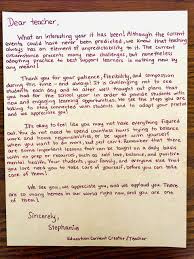 Dear teacher,
What an interesting year it has been! Although the current
events could have never been predicted, we knew that teaching
always has an element of unpredictability to it. The current
circumstance presents many new challenges, but nonetheless
adapting practice to best support learners is nothing new by
any means!
Thank you for your patience, flexibility, and compassion
during this time and always! It is challenging not to see
students each day and to alter well thought out plans that
were made for the school year in order to provide students
new and engaging learning opportunities. We see the steps you are
taking to stay connected with students and to adapt plans and
we appreciate you!
It's okay to feel like you may not have everything figured
out. You do not need to spend countless hours trying to balance
work and home responsibilities, or to be upset with yourself
when you want to do more, but just can't. Remember that there
are some important lessons that can be taught on a daily basis
with no prep or resources, such as self love, balance, and positive
mental health. Your students, your family, and anyone else that
you love need you to take care of yourself, before you can take
care of them.
We see you, we appreciate you, and we applaud you. There
are so many heroes in our world right now, and you are
one.
Sincerely,
Stephanie
Education Content Creator/Teacher